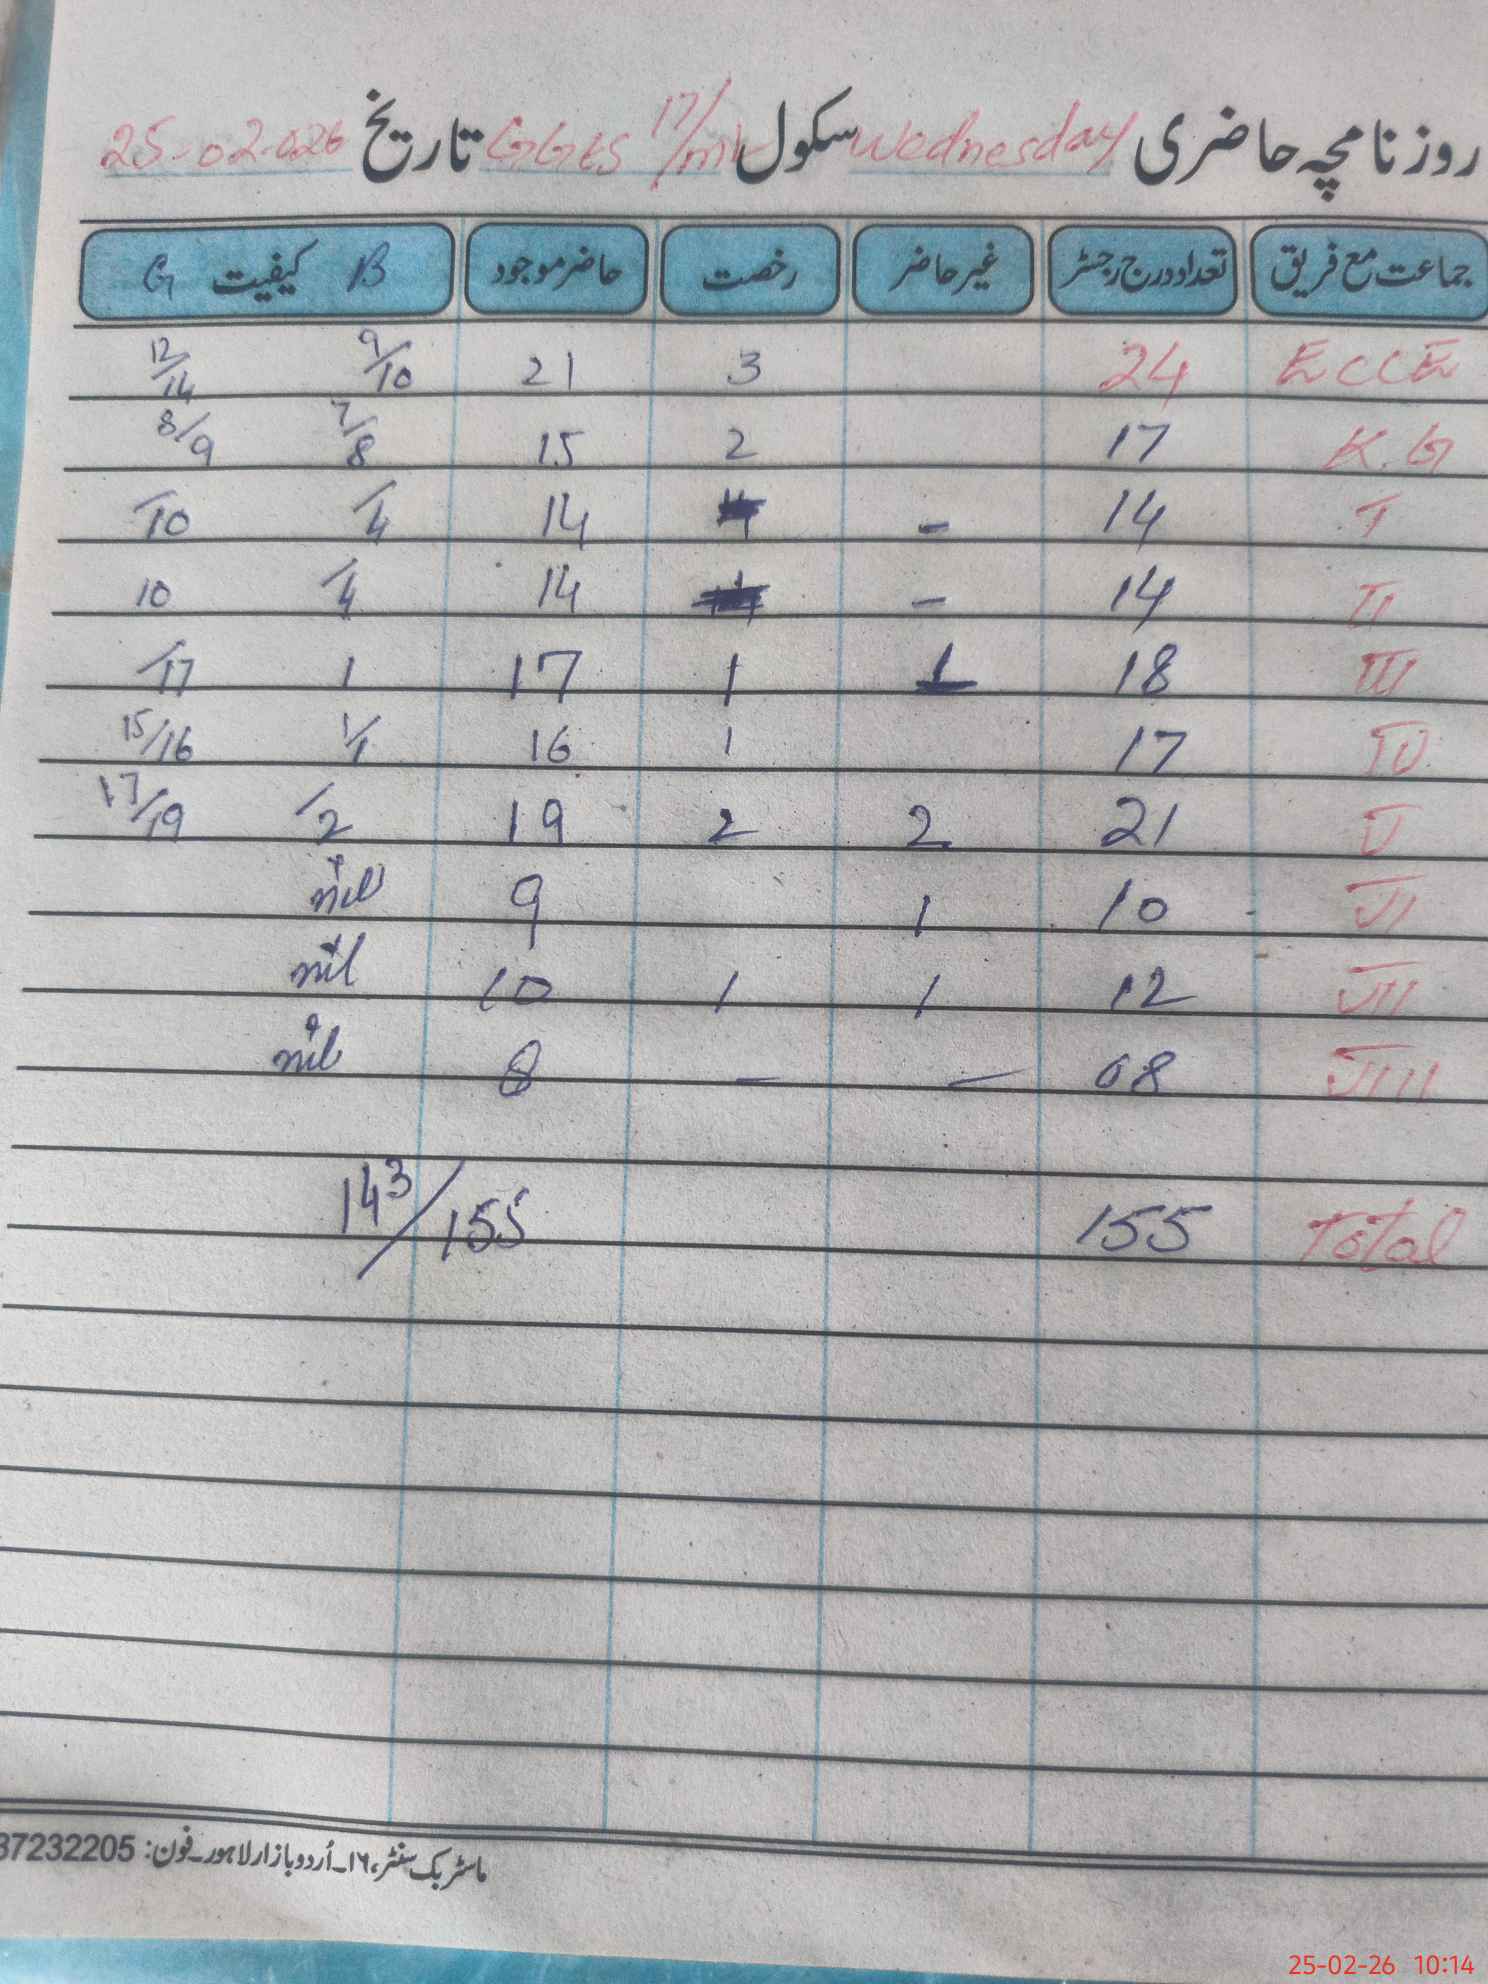 روزنامچہ حاضری Wednesday سکول GGES 17/ml تاریخ 25-02-026
جماعت مع فریق تعداد درج رجسٹر غیر حاضر رخصت حاضر موجود B کیفیت G
ECCE 24 3 21 9/10 12/14
K.G 17 2 15 7/8 8/9
I 14 - 14 /4 /10
II 14 - 14 /4 10
III 18 1 1 17 1 /17
IV 17 1 16 1/1 15/16
V 21 2 2 19 /2 17/19
VI 10 1 9 nil
VII 12 1 1 10 nil
VIII 08 - - 8 nil
Total 155 143/155
ماسٹر بک سنٹر، ۱۶۔اُردو بازار لاہور۔فون: 37232205
25-02-26 10:14